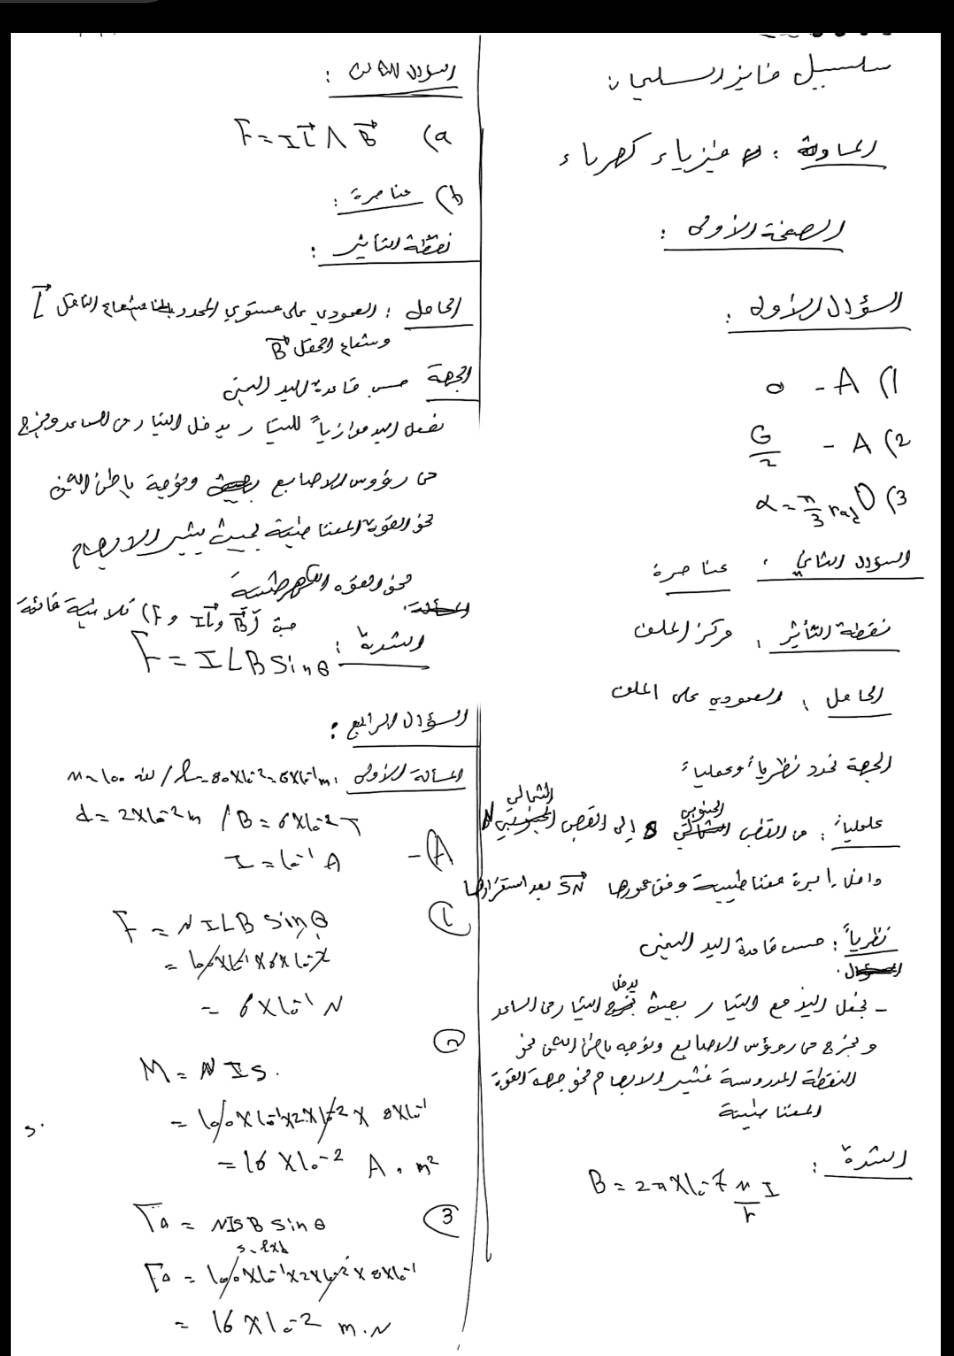 سلسبيل فايز السليمان
المادة : فيزياء كهرباء
الصفحة الأولى :
السؤال الأول :
1) A - 0
2) A - G/2
3) D α = π/3 rad
السؤال الثاني : عناصره
نقطة التأثير : مركز الملف
الحامل : العمودي على الملف
الجهة تحدد نظرياً وعملياً :
عملياً : من القطب الجنوبي S إلى القطب الشمالي N
داخل إبرة مغناطيسية وفق محورها SN بعد استقرارها
نظرياً : حسب قاعدة اليد اليمنى
- نجعل اليد مع التيار بحيث يدخل التيار من الساعد
و يخرج من رؤوس الاصابع ونوجه باطن الكف نحو
النقطة المدروسة فيشير الابهام نحو جهة القوة
المغناطيسية
الشدة :
B = 2π×10-7 N I / r
السؤال الثالث :
a) F = I L Λ B
b) عناصره :
نقطة التأثير :
الحامل : العمودي على مستوي المحدد بشعاع الناقل L
وشعاع الحقل B
الجهة حسب قاعدة اليد اليمنى
نجعل اليد موازياً للتيار يدخل التيار من الساعد ويخرج
من رؤوس الاصابع ونوجه باطن الكف
نحو القوة المغناطيسية بحيث يشير الابهام
نحو القوه الكهرطيسية
(F و IL و B) ثلاثية قائمة
الشدة :
F = I L B Sin θ
السؤال الرابع :
المسألة الأولى : N = 100 لفة / L = 80×10-2 = 8×10-1 m
d = 2×10-2 m / B = 6×10-2 T
I = 10-1 A
A) -
1) F = N I L B Sin θ
= 6×10-1 N
2) M = N I s.
= 100×10-1×2×10-2 × 8×10-1
= 16 ×10-2 A . m2
3) Γa = N I S B Sin θ
s = L×d
Γa = 100×10-1×2×10-2×8×10-1
= 16×10-2 m.N